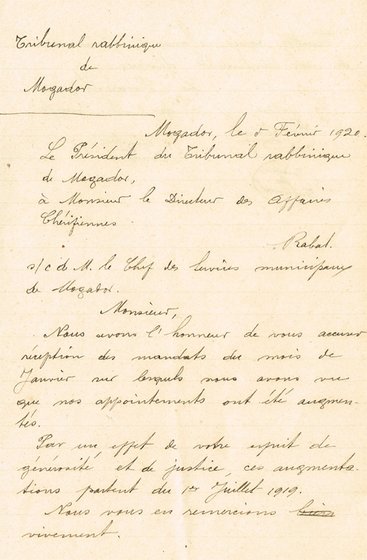 Tribunal rabbinique
de
Mogador
Mogador, le 5 Février 1920.
Le Président du Tribunal rabbinique
de Mogador,
à Monsieur le Directeur des Affaires
Chérifiennes
Rabat.
s/c de M. le Chef des Services municipaux
de Mogador.
Monsieur,
Nous avons l'honneur de vous accuser
réception des mandats du mois de
Janvier sur lesquels nous avons vu
que nos appointements ont été augmen-
tés.
Par un effet de votre esprit de
générosité et de justice, ces augmenta-
tions partent du 1er Juillet 1919.
Nous vous en remercions bien
vivement.